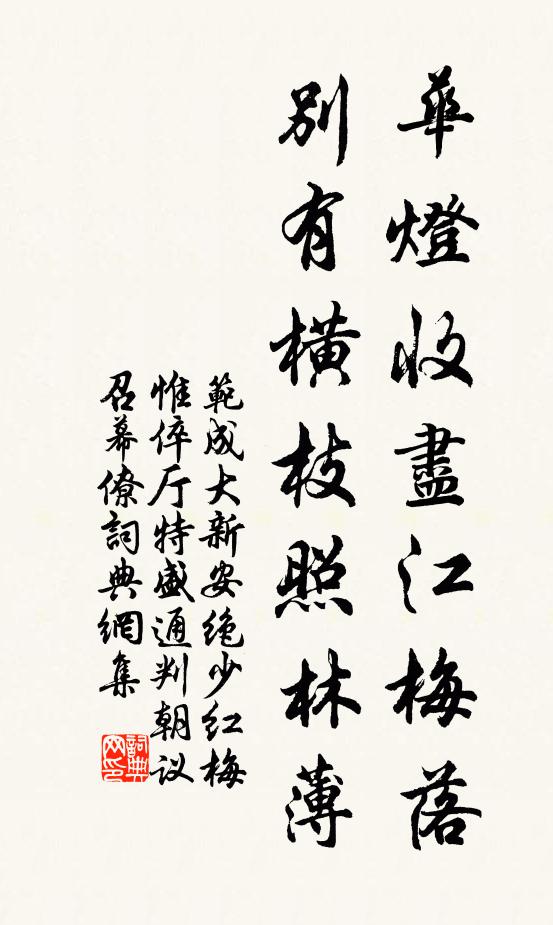 華燈收盡江梅落
別有橫枝照林薄
範成大新安绝少红梅
惟倅厅特盛通判朝议
召幕僚詞典網集
詞典网印